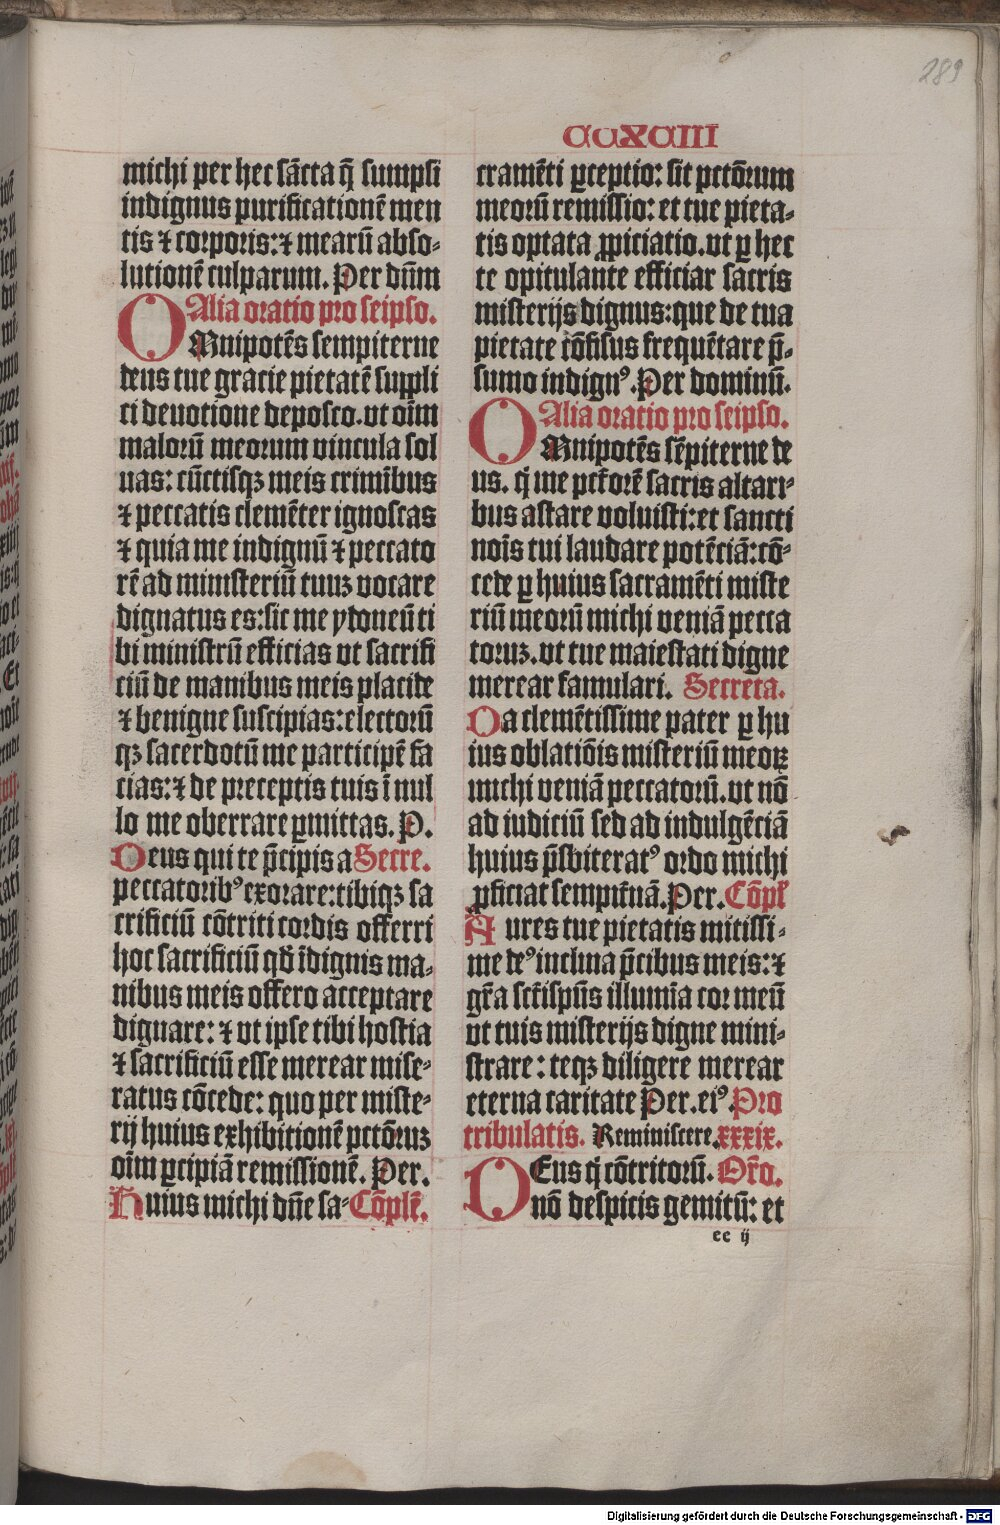 289
CCXCIII
michi per hec sācta q̄ sumpsi
indignus purificationē men
tis ⁊ corporis: ⁊ mearū abso-
lutionē culparum. Per dn̄m
Alia oratio pro seipso.
OMnipotēs sempiterne
deus tue gracie pietatē suppli
ci deuotione deposco. vt oīm
malorū meorum vincula sol
uas: cūctisqȝ meis criminībus
⁊ peccatis clemēter ignoscas
⁊ quia me indignū ⁊ peccato
rē ad ministeriū tuuȝ vocare
dignatus es: sic me ydoneū ti
bi ministrū efficias vt sacrifi
ciū de manibus meis placide
⁊ benigne suscipias: electorū
qȝ sacerdotū me participē fa
cias: ⁊ de preceptis tuis ī nul
lo me oberrare ꝑmittas. P.
Deus qui te p̄cipis a Secre.
peccatoribꝰ exorare: tibiqȝ sa
crificiū cōtriti cordis offerri
hoc sacrificiū qd̄ īdignis ma-
nibus meis offero acceptare
dignare: ⁊ vt ipse tibi hostia
⁊ sacrificiū esse merear mise-
ratus cōcede: quo per miste-
rij huius exhibitionē pctōruȝ
oīm ꝑcipiā remissionē. Per.
Huius michi dn̄e sa- Cōplē.
cramēti ꝑceptio: sit pctōrum
meorū remissio: et tue pieta-
tis optata ꝓpiciatio. vt ꝑ hec
te opitulante efficiar sacris
misterijs dignus: que de tua
pietate cōfisus frequētare p̄-
sumo indignꝰ. Per dominū.
Alia oratio pro seipso.
OMnipotēs sēpiterne de
us. q̄ me pctōrē sacris altari-
bus astare voluisti: et sancti
noīs tui laudare potēciā: cō-
cede ꝑ huius sacramēti miste
riū meorū michi veniā pecca
toruȝ. vt tue maiestati digne
merear famulari. Secreta.
Da clemētissime pater ꝑ hu
ius oblatiōis misteriū meoꝝ
michi veniā peccatorū. vt nō
ad iudiciū sed ad indulgēciā
huius p̄sbiteratꝰ ordo michi
ꝓficiat sempit̄nā. Per. Cōpl̄
Aures tue pietatis mitissi-
me deꝰ inclina p̄cibus meis: ⁊
gr̄a sct̄ispūs illumīa cor meū
vt tuis misterijs digne mini-
strare: teqȝ diligere merear
eterna caritate Per. eiꝰ. Pro
tribulatis. Reminiscere. xxxix.
DEus q̄ cōtritorū. Or̄o.
nō despicis gemitū: et
ee ij
Digitalisierung gefördert durch die Deutsche Forschungsgemeinschaft - DFG